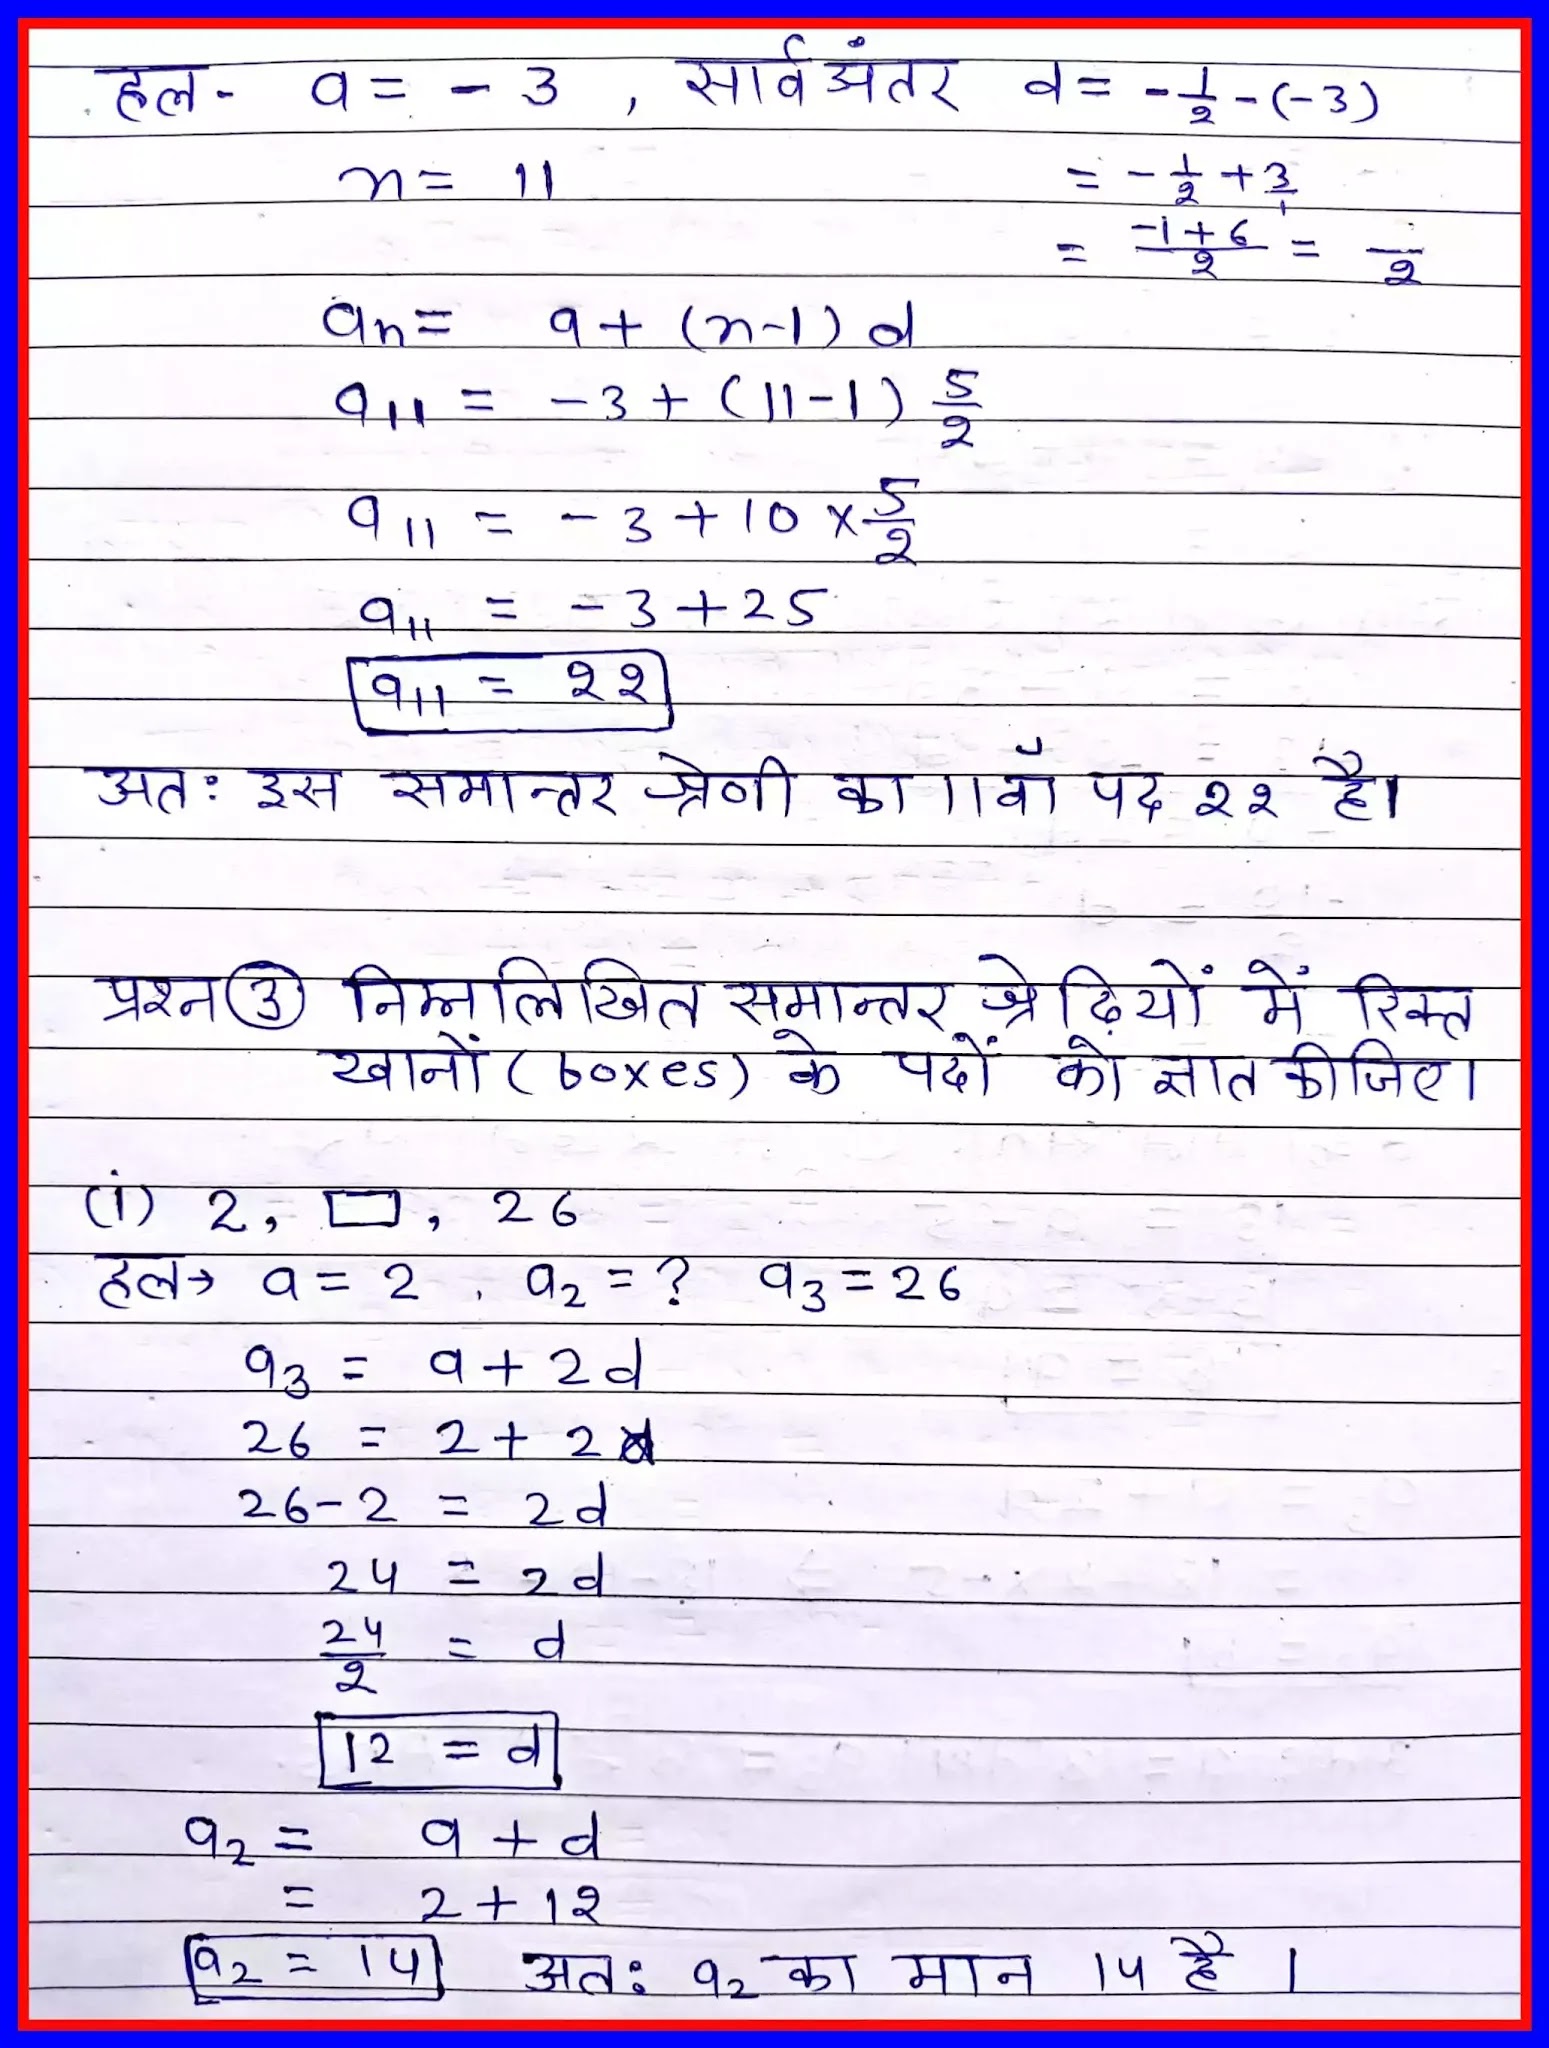 हल- a = - 3 , सार्वअंतर d = -1/2 - (-3)
n = 11 = -1/2 + 3/1
= (-1+6)/2 = /2
an = a + (n-1) d
a11 = -3 + (11-1) 5/2
a11 = -3 + 10 × 5/2
a11 = -3 + 25
a11 = 22
अतः इस समान्तर श्रेणी का 11वाँ पद 22 है।
प्रश्न 3 निम्नलिखित समान्तर श्रेढ़ियों में रिक्त
खानों (boxes) के पदों को ज्ञात कीजिए।
(i) 2, □, 26
हल→ a = 2, a2 = ? a3 = 26
a3 = a + 2d
26 = 2 + 2d
26 - 2 = 2d
24 = 2d
24/2 = d
12 = d
a2 = a + d
= 2 + 12
a2 = 14 अतः a2 का मान 14 है।